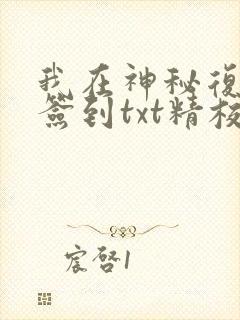 我在神秘復
簽到txt精校
宸啓1